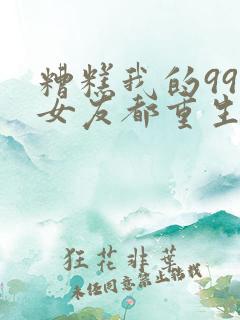 糟糕我的99
女友都重生
狂花非葉
未经同意禁止转载